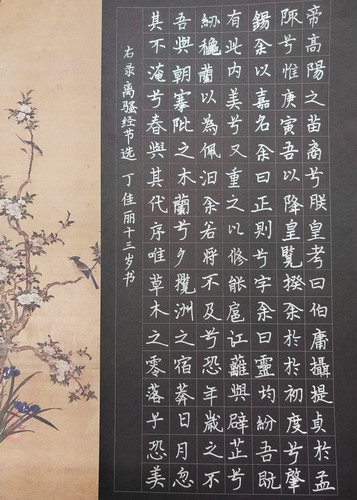 帝高陽之苗裔兮朕皇考曰伯庸攝提貞於孟
陬兮惟庚寅吾以降皇覽揆余於初度兮肇
錫余以嘉名余曰正則兮字余曰靈均紛吾既
有此内美兮又重之以修能扈江離與辟芷兮
紉穐蘭以為佩汩余若將不及兮恐年歲之不
吾與朝搴阰之木蘭兮夕攬洲之宿莽日月忽
其不淹兮春與其代序唯草木之零落兮恐美
右录离骚经节选 丁佳丽十三岁书